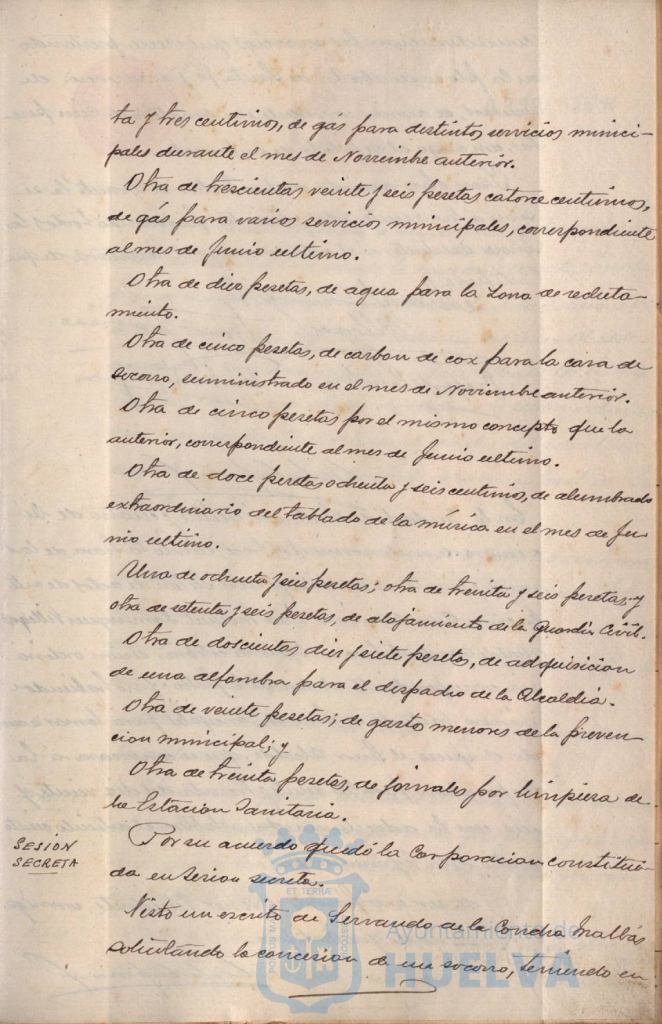 ta y tres centimos, de gás para distintos servicios munici-
pales durante el mes de Noviembre anterior.
Otra de trescientas veinte y seis pesetas catorce centimos,
de gás para varios servicios municipales, correspondiente
al mes de Junio ultimo.
Otra de diez pesetas, de agua para la Zona de recluta-
miento.
Otra de cinco pesetas, de carbon de cox para la casa de
socorro, suministrado en el mes de Noviembre anterior.
Otra de cinco pesetas por el mismo concepto que la
anterior, correspondiente al mes de Junio ultimo.
Otra de doce pesetas ochenta y seis centimos, de alumbrado
extraordinario del tablado de la música en el mes de Ju-
nio ultimo.
Una de ochenta y seis pesetas; otra de treinta y seis pesetas; y
otra de setenta y seis pesetas, de alojamiento de la Guardia Civil.
Otra de doscientos diez y siete pesetas, de adquisicion
de una alfombra para el despacho de la Alcaldia.
Otra de veinte pesetas; de gasto menores de la preven-
cion municipal; y
Otra de treinta pesetas, de jornales por limpieza de
la Estacion Sanitaria.
SESIÓN
SECRETA
Por su acuerdo quedó la Corporacion constitui-
da en sesion secreta.
Visto un escrito de Servando de la Concha
solicitando la concesion de un socorro, teniendo en
Ayuntamiento de
HUELVA